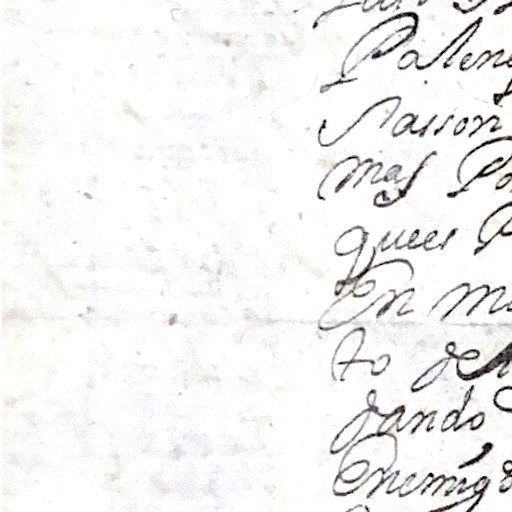 Palen
nasson
mas Po
quees P
En m
to de
dando
Enemigo